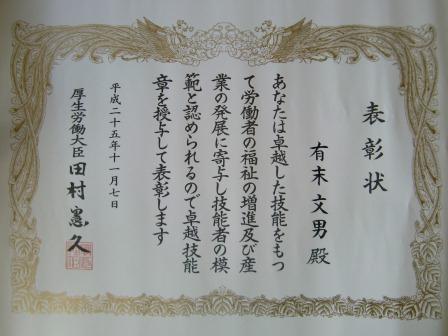 表彰状
有末文男殿
あなたは卓越した技能をもつ
て労働者の福祉の増進及び産
業の発展に寄与し技能者の模
範と認められるので卓越技能
章を授与して表彰します
平成二十五年十一月七日
厚生労働大臣 田村憲久